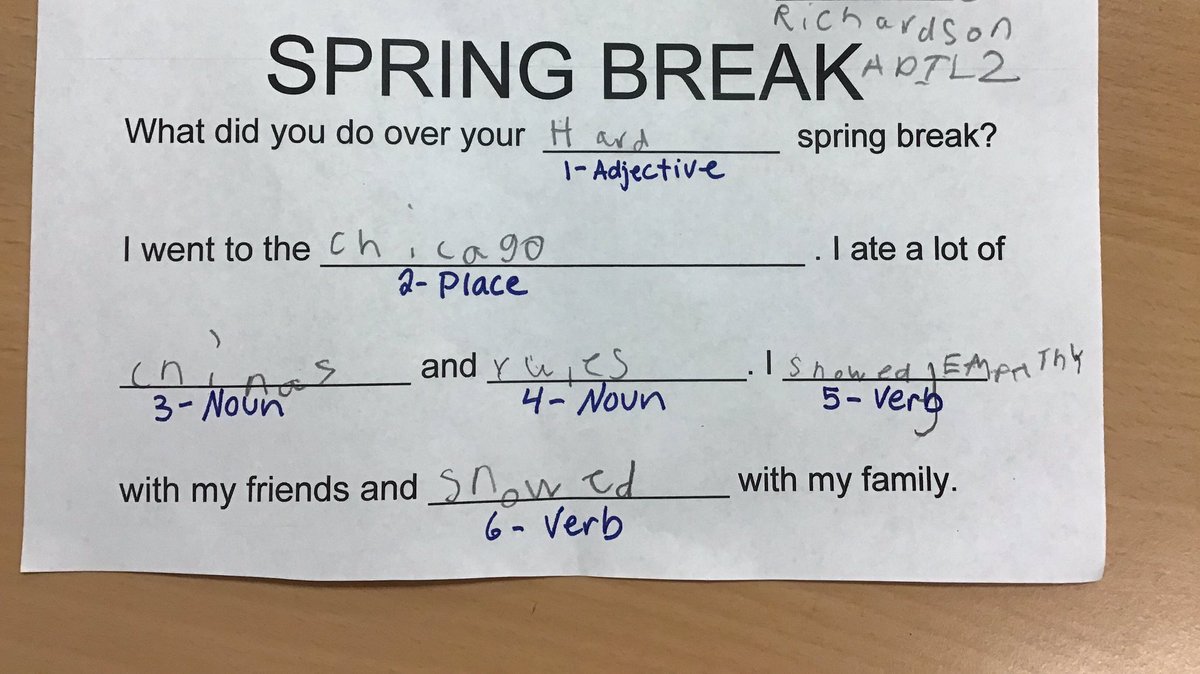 Richardson
SPRING BREAK ADTL2
What did you do over your Hard spring break?
1-Adjective
I went to the chicago . I ate a lot of
2-Place
chinas and rules . I showed EMPATHY
3-Noun 4-Noun 5-Verb
with my friends and snowed with my family.
6-Verb